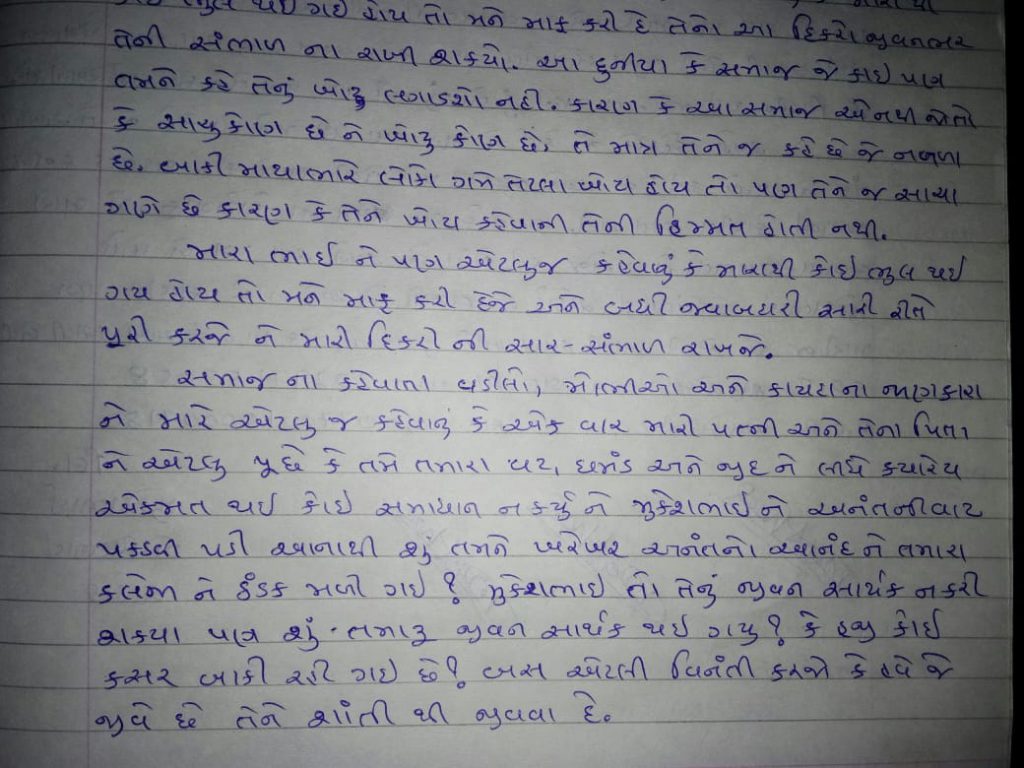 ભુલ થઇ ગઇ હોય તો મને માફ કરી દે તેનો આ દિકરો જીવનભર
તેની સંભાળ ના રાખી શક્યો. આ દુનીયા કે સમાજ જે કાઇ પણ
તમને કહે તેનું ખોટુ લગાડશો નહી. કારણ કે આ સમાજ એ નથી જોતો
કે સાચુ કોણ છે ને ખોટુ કોણ છે, તે માત્ર તેને જ કહે છે જે નબળા
છે. બાકી માથાભારે લોકો ગમે તેટલા ખોટા હોય તો પણ તેને જ સાચા
ગણે છે કારણ કે તેને ખોટા કહેવાની તેની હિમ્મત હોતી નથી.
મારા ભાઇ ને પણ એટલુજ કહેવાનું કે મારાથી કોઇ ભુલ થઇ
ગય હોય તો મને માફ કરી દેજે અને બધી જવાબદારી સારી રીતે
પુરી કરજે ને મારી દિકરી ની સાર-સંભાળ રાખજે.
સમાજ ના કહેવાતા વડીલો, મોભીઓ અને કાયદાના જાણકારો
ને મારે એટલુ જ કહેવાનું કે એક વાર મારી પત્ની અને તેના પિતા
ને એટલુ પૂછે કે તમે તમારા ઘટ, ઘમંડ અને જીદ ને લીધે ક્યારેય
એકમત થઇ કોઇ સમાધાન ન કર્યુ ને મુકેશભાઇ ને અનંતની વાટ
પકડવી પડી આનાથી શું તમને ખરેખર અનંતનો આનંદ ને તમારા
કલેજા ને ઠંડક મળી ગઇ ? મુકેશભાઇ તો તેનું જીવન સાર્થક ન કરી
શક્યા પણ શું તમારૂ જીવન સાર્થક થઇ ગયુ ? કે હજુ કોઇ
કસર બાકી રહી ગઇ છે ? બસ એટલી વિનંતી કરજો કે હવે જે
જીવે છે તેને શાંતી થી જીવવા દે.